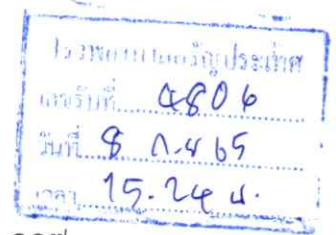 โรงพยาบาลอรัญประเทศ
เลขรับที่ 4806
วันที่ 8 ก.ย 65
เวลา 15.24 น.